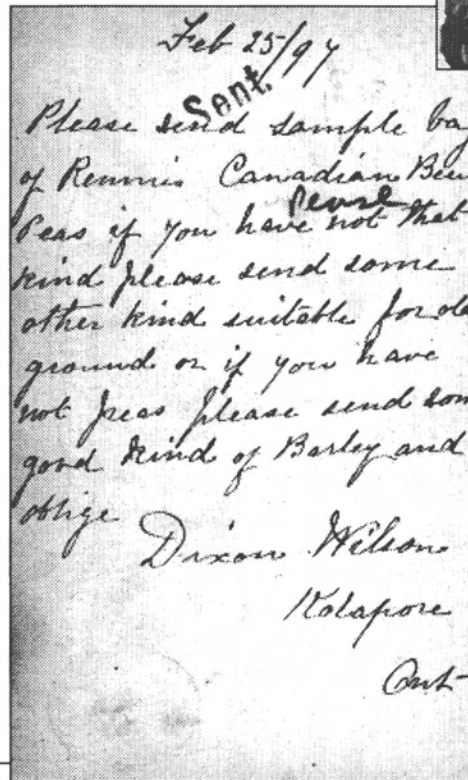 Feb 25/97
Sent.
Please send sample bag
of Rennis Canadian
Peas if you have not that
kind please send some
other kind suitable for old
ground or if you have
not peas please send som
good kind of Barley and
oblige
Dixon Wilson
Kolapore
Ont